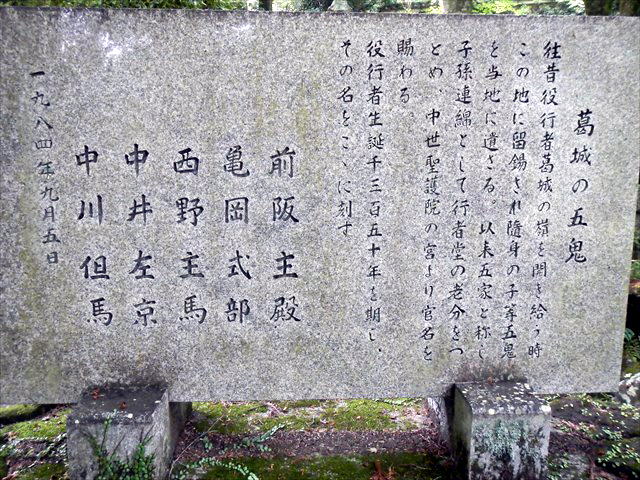 葛城の五鬼
往昔役行者葛城の嶺を開き給う時
この地に留錫され随身の子弟五鬼
を当地に遺さる。以来五家と称し
子孫連綿として行者堂の老分をつ
とめ、中世聖護院の宮より官名を
賜わる。
役行者生誕千三百五十年を期し、
その名をこゝに刻す
前阪主殿
亀岡式部
西野主馬
中井左京
中川但馬
一九八四年九月五日